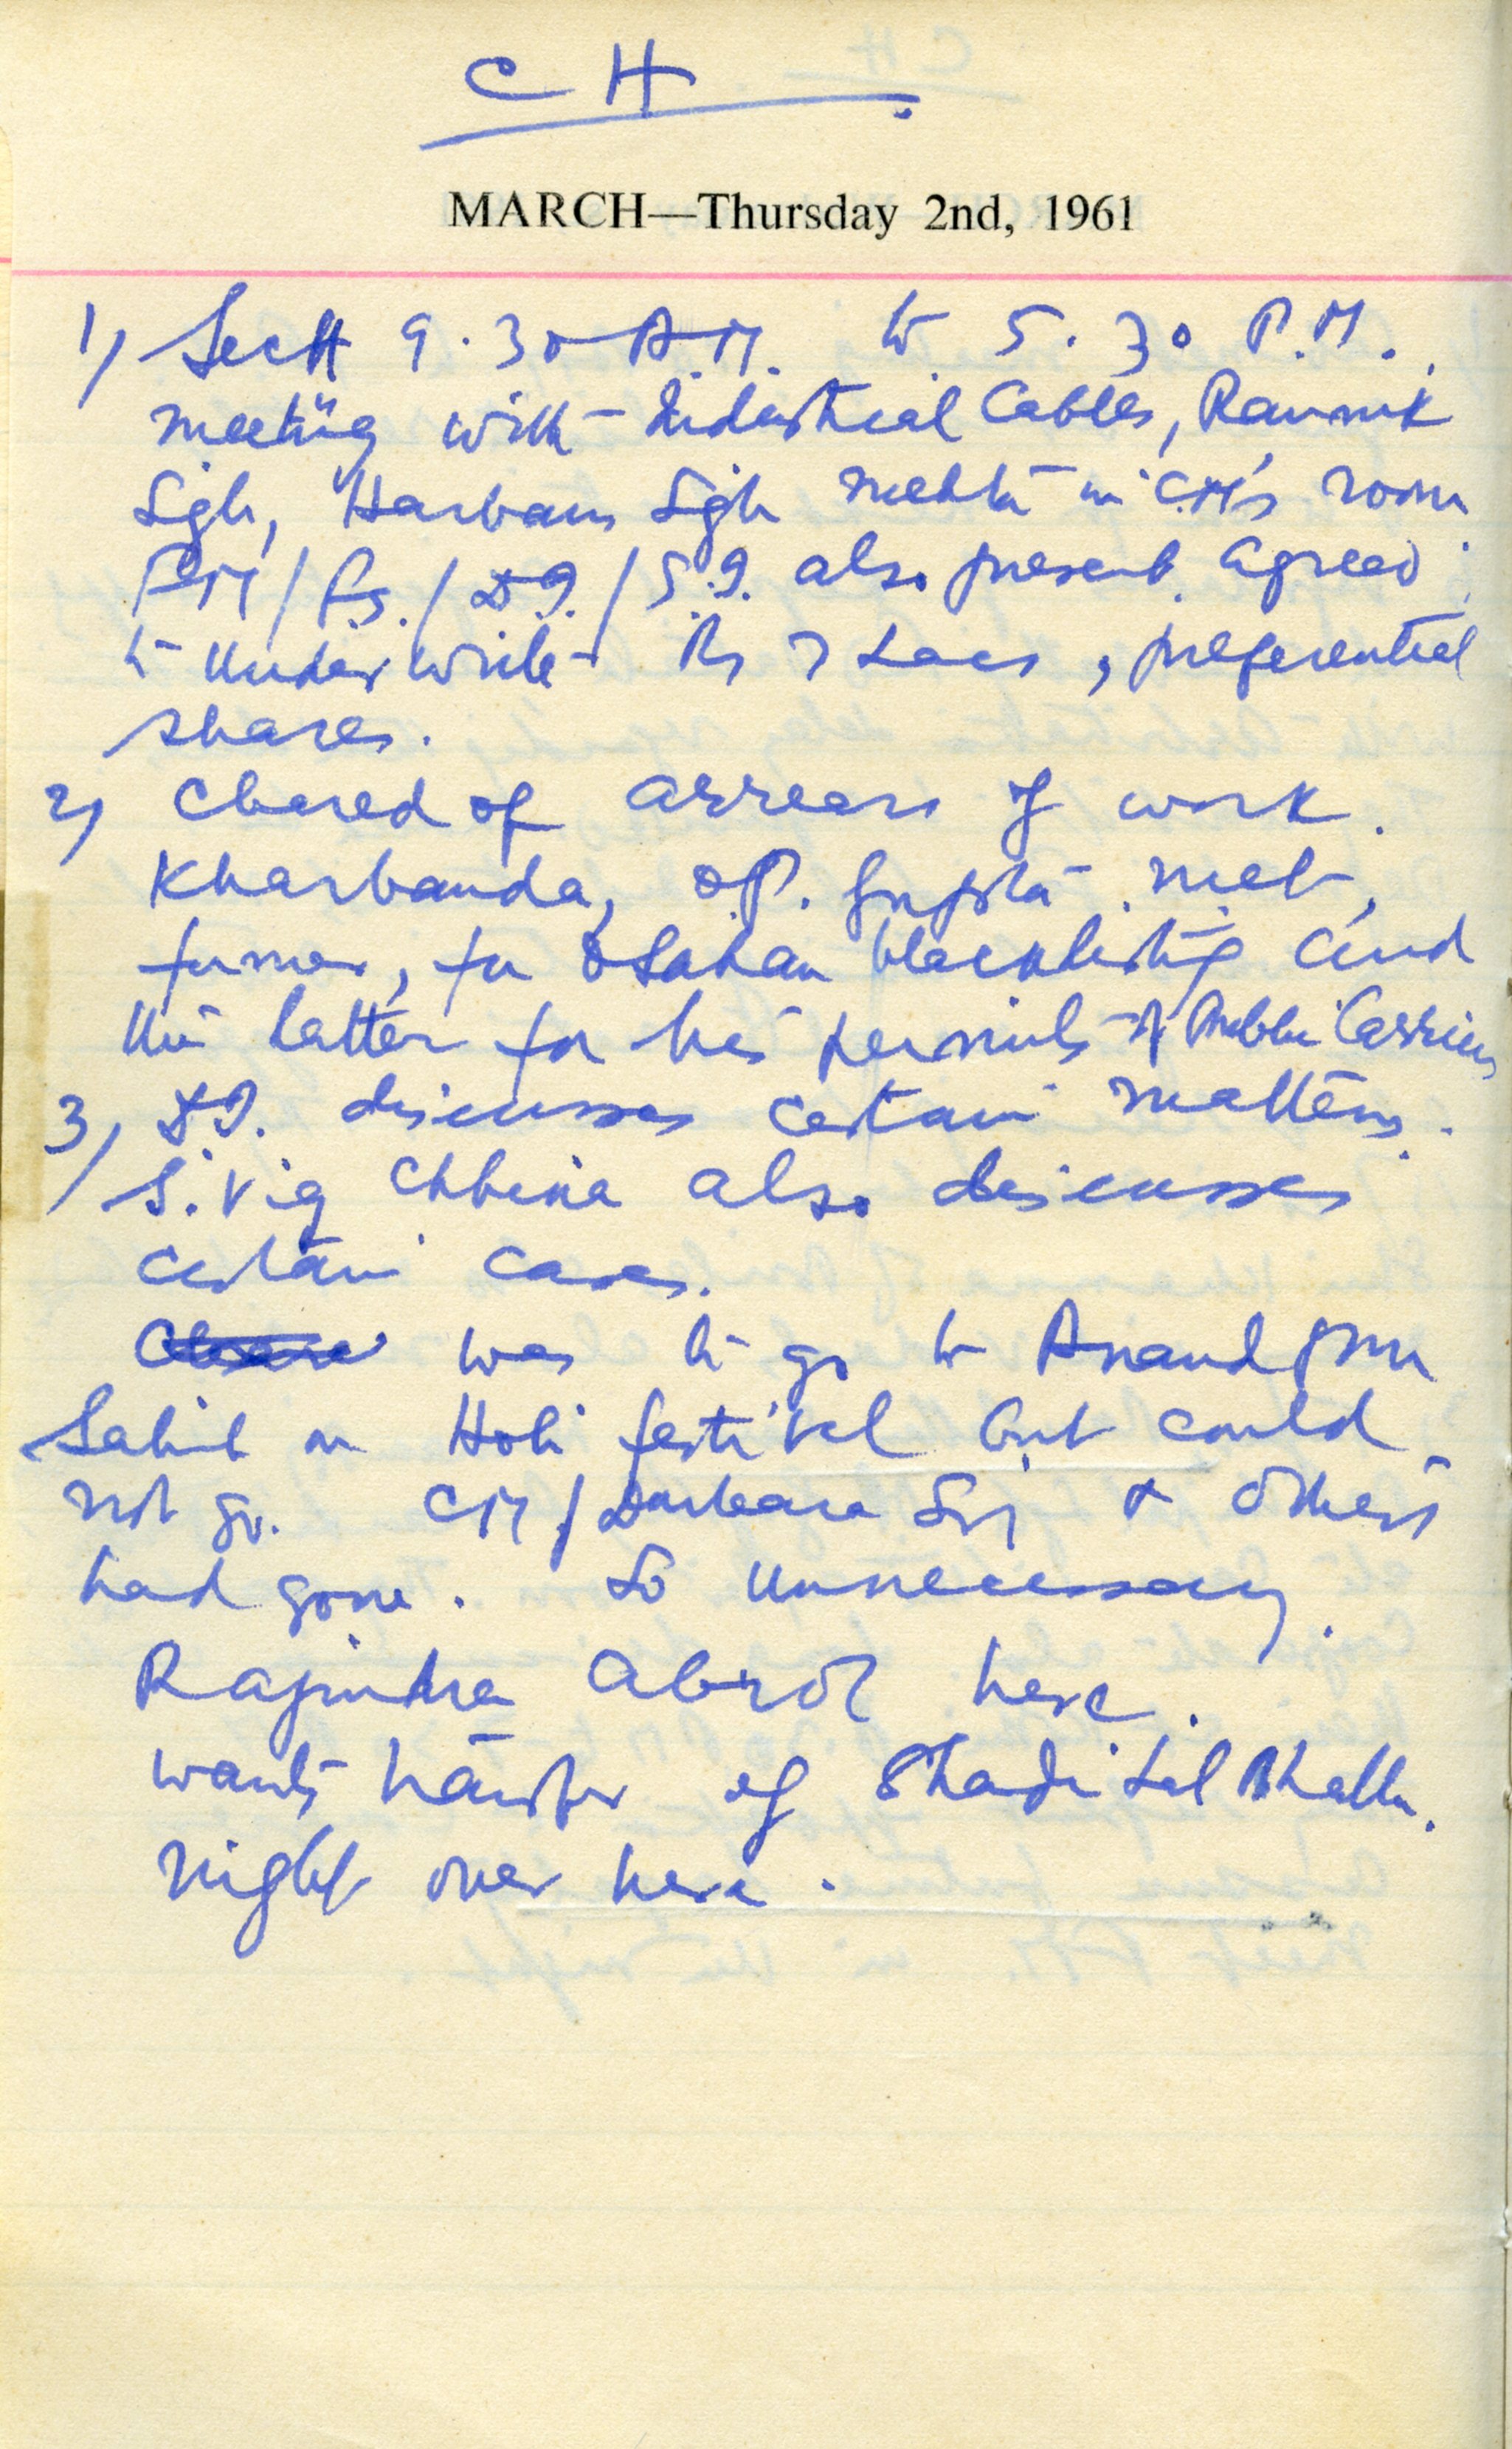 CH
MARCH—Thursday 2nd, 1961
1) Sectt 9.30 A.M. to 5.30 P.M.
meeting with Industrial Cables, Raunak
Sgh, Harbans Sgh Mehta in CM's room.
FM/FS./D.I./S.I. also present. agreed
to underwrite Rs 7 Lacs, preferential
shares.
2) Cleared of arrears of work.
Kharbanda, O.P. Gupta met,
former, for blacklisting and
the latter for his permits of Public Carriers
3) D.I. discusses certain matters.
S. Vig Chhina also discusses
certain cases.
was to go to Anandpur
Sahib on Holi festival but could
not go. CM/Darbara Sgh & others
had gone. So unnecessary.
Rajindra Abrol here.
wants transfer of Shadi Lal Bhalla.
night over here.